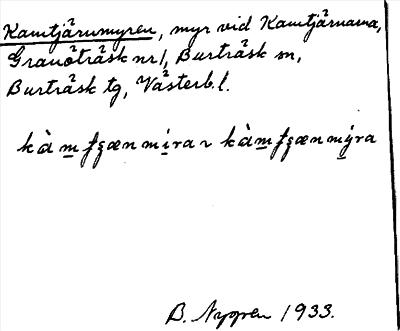 Kamtjärnmyren, myr vid Kamtjärnarna,
Granöträsk nr 1, Burträsk sn,
Burträsk tg, Västerb. l.
B. Nygren 1933.